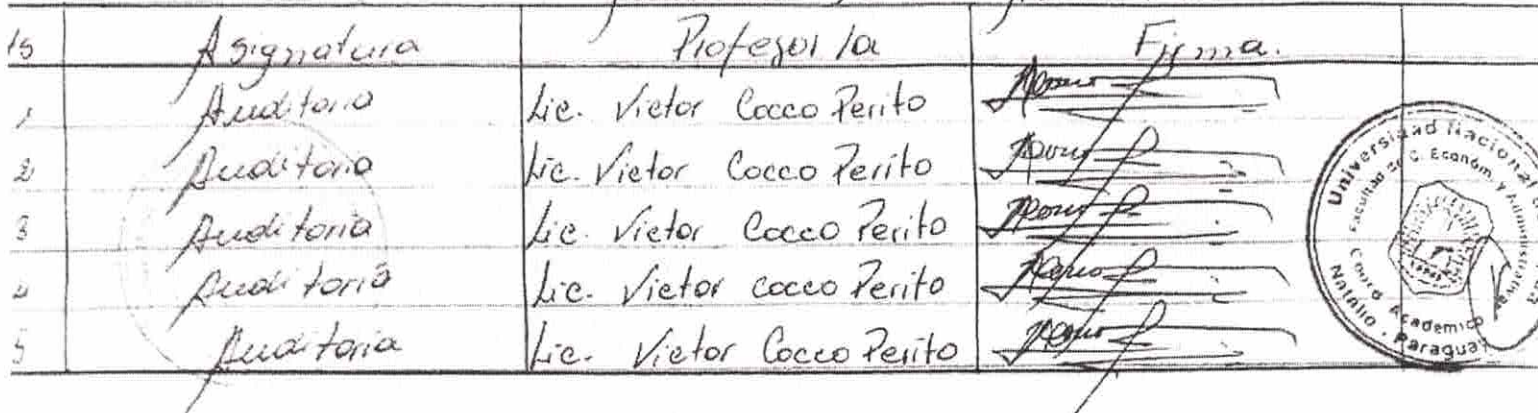 Asignatura Profesor/a Firma.
1 Auditoria Lic. Victor Cocco Perito
2 Auditoria Lic. Victor Cocco Perito
3 Auditoria Lic. Victor Cocco Perito
4 Auditoria Lic. Victor cocco Perito
5 Auditoria Lic. Victor Cocco Perito
Universidad Nacional
Facultad de C. Económ. y Administrativas
Académico
Natalio - Paraguay